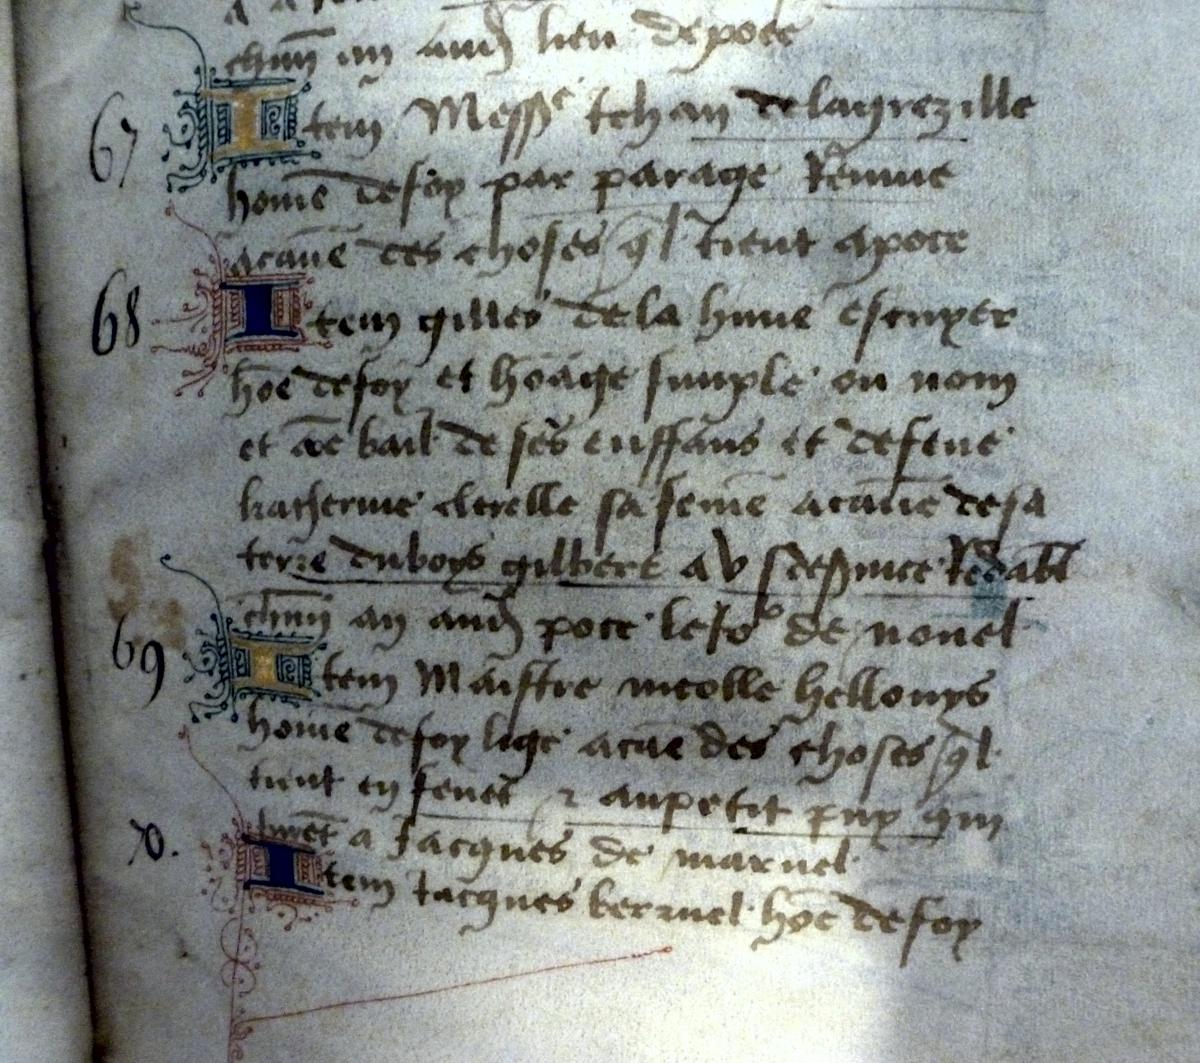 chun an aud lieu de poce
67 Item Mess^e Jehan de la grezille
home de foy par parage
a cause des choses q'l tient a poce
68 Item gilles de la hune escuyer
hoe de foy et homage simple ou nom
et ae bail de ses enffans et de feue
katherine clerelle sa feme a cause de sa
terre du boys gilbert a V s de s'vice Redabl
chun an aud poce le jo^r de nouel
69 Item Maistre nicolle hellouys
home de foy lige a cause des choses q'l
tient en et au petit puy qui
furet a Jacques de maruel
70. Item Jacques hoe de foy